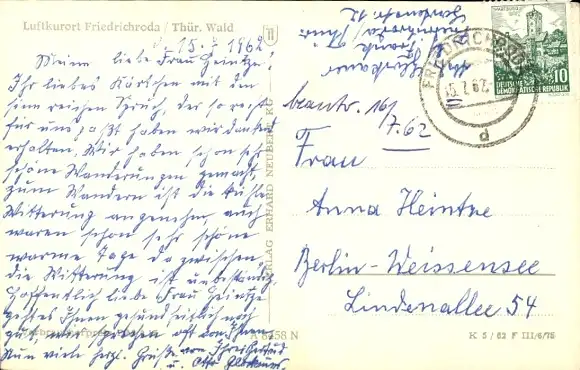 Luftkurort Friedrichroda / Thür. Wald
15.7.1962
Meine liebe Frau Heintze!
Ihr liebes Kärtchen mit dem
sinnreichen Spruch, der so recht
für uns paßt haben wir dankend
erhalten. Wir haben schon sehr
schöne Wanderungen gemacht,
zum Wandern ist die kühle
Witterung angenehm, auch
waren schon sehr schöne
warme Tage dazwischen,
die Witterung ist unbeständig.
Hoffentlich liebe Frau Heintze
geht es Ihnen gesundheitlich noch
gut, wir sprechen oft von Ihnen.
Nun viele herzl. Grüße von Ihrer
u. Otto
VERLAG ERHARD NEUBERT KG
A 8258 N
Friedrichroda/Thür.
FRIEDRICHRODA
15.7.62
d
DEUTSCHE
DEMOKRATISCHE REPUBLIK
10
beantw. 16/
7.62
Frau
Anna Heintze
Berlin-Weissensee
Lindenallee 54
K 5/62 F III/6/78